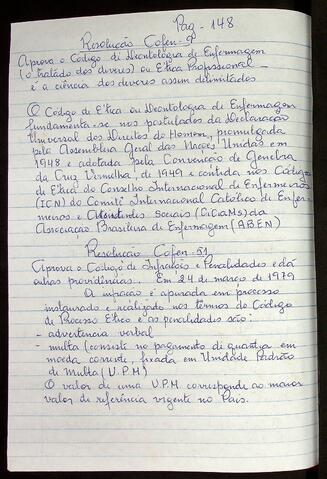 Pag - 148
Resolução Cofen-9
Aprova o Código de Deontologia de Enfermagem
(o tratado dos deveres) ou Ética Profissional -
é a ciência dos deveres assim delimitados
O Código de Ética ou Deontologia de Enfermagem
fundamenta-se nos postulados da Declaração
Universal dos Direitos do Homem, promulgada
pela Assembléia Geral das Nações Unidas em
1948 e adotada pela Convenção de Genebra
da Cruz Vermelha, de 1949 e contida nos Códigos
de Ética do Conselho Internacional de Enfermeiros
(ICN) do Comitê Internacional Católico de Enfer-
meiras e Assistentes Sociais (CICIAMS) da
Associação Brasileira de Enfermagem (ABEN)
Resolução Cofen-51
Aprova o Código de Infrações e Penalidades e dá
outras providências. Em 24 de março de 1979
A infração é apurada em processo
instaurado e realizado nos termos do Código
de Processo Ético e as penalidades são:
- advertencia verbal
- multa (consiste no pagamento de quantia em
moeda corrente, fixada em Unidade Padrão
de Multa (U.P.M)
O valor de uma U.P.M corresponde ao maior
valor de referência vigente no País.